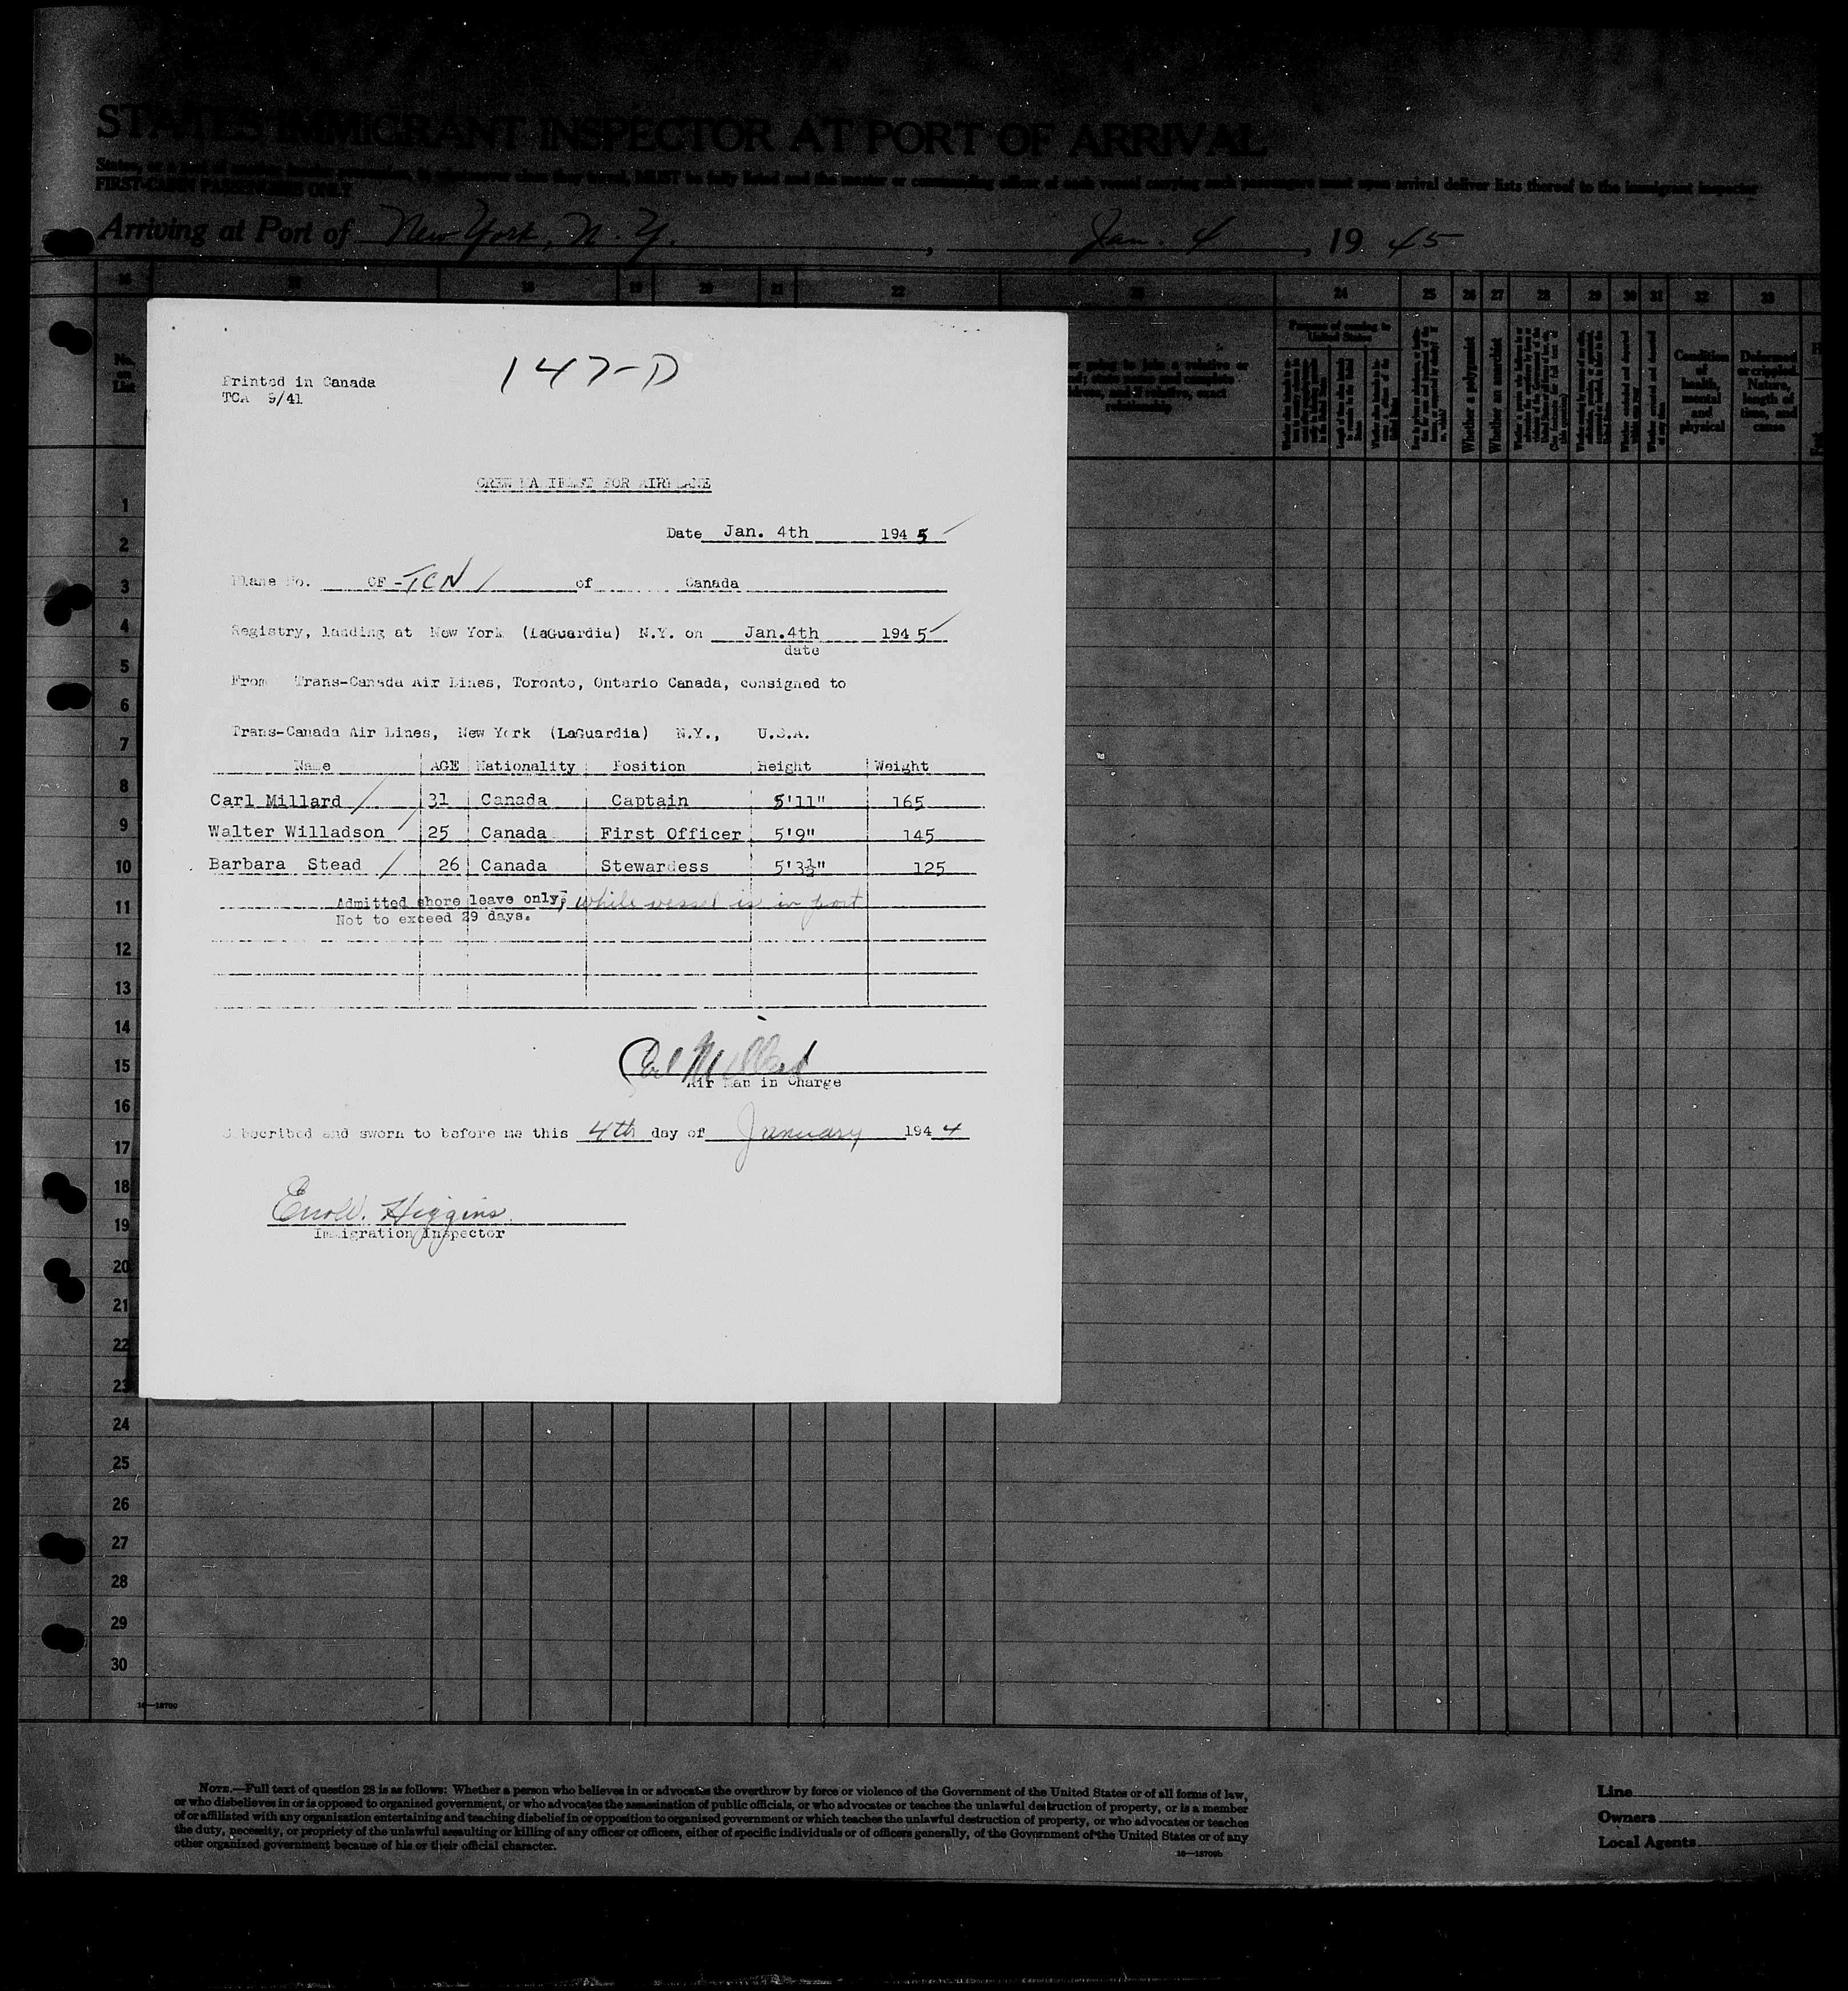 STATES IMMIGRANT INSPECTOR AT PORT OF ARRIVAL
FIRST-CABIN PASSENGERS ONLY
Arriving at Port of New York, N. Y. , Jan. 4 , 19 45
16 17 18 19 20 21 22 23 24 25 26 27 28 29 30 31 32 33
No. on List
Purpose of coming to United States
Whether a polygamist
Whether an anarchist
Condition of health, mental and physical
Deformed or crippled. Nature, length of time, and cause
147-D
Printed in Canada
TCA 9/41
CREW MANIFEST FOR AIRPLANE
Date Jan. 4th 194 5
Plane No. CF -TCN of Canada
Registry, landing at New York (LaGuardia) N.Y. on Jan.4th 194 5
date
From Trans-Canada Air Lines, Toronto, Ontario Canada, consigned to
Trans-Canada Air Lines, New York (LaGuardia) N.Y., U.S.A.
Name AGE Nationality Position Height Weight
Carl Millard 31 Canada Captain 5'11" 165
Walter Willadson 25 Canada First Officer 5'9" 145
Barbara Stead 26 Canada Stewardess 5'3½" 125
Admitted shore leave only, while vessel is in port
Not to exceed 29 days.
Carl Millard
Air Man in Charge
Subscribed and sworn to before me this 4th day of January 194 4
Errol W. Higgins
Immigration Inspector
1
2
3
4
5
6
7
8
9
10
11
12
13
14
15
16
17
18
19
20
21
22
23
24
25
26
27
28
29
30
16—18700
NOTE.—Full text of question 28 is as follows: Whether a person who believes in or advocates the overthrow by force or violence of the Government of the United States or of all forms of law,
or who disbelieves in or is opposed to organized government, or who advocates the assassination of public officials, or who advocates or teaches the unlawful destruction of property, or is a member
of or affiliated with any organization entertaining and teaching disbelief in or opposition to organized government or which teaches the unlawful destruction of property, or who advocates or teaches
the duty, necessity, or propriety of the unlawful assaulting or killing of any officer or officers, either of specific individuals or of officers generally, of the Government of the United States or of any
other organized government because of his or their official character.
16—18700b
Line
Owners
Local Agents